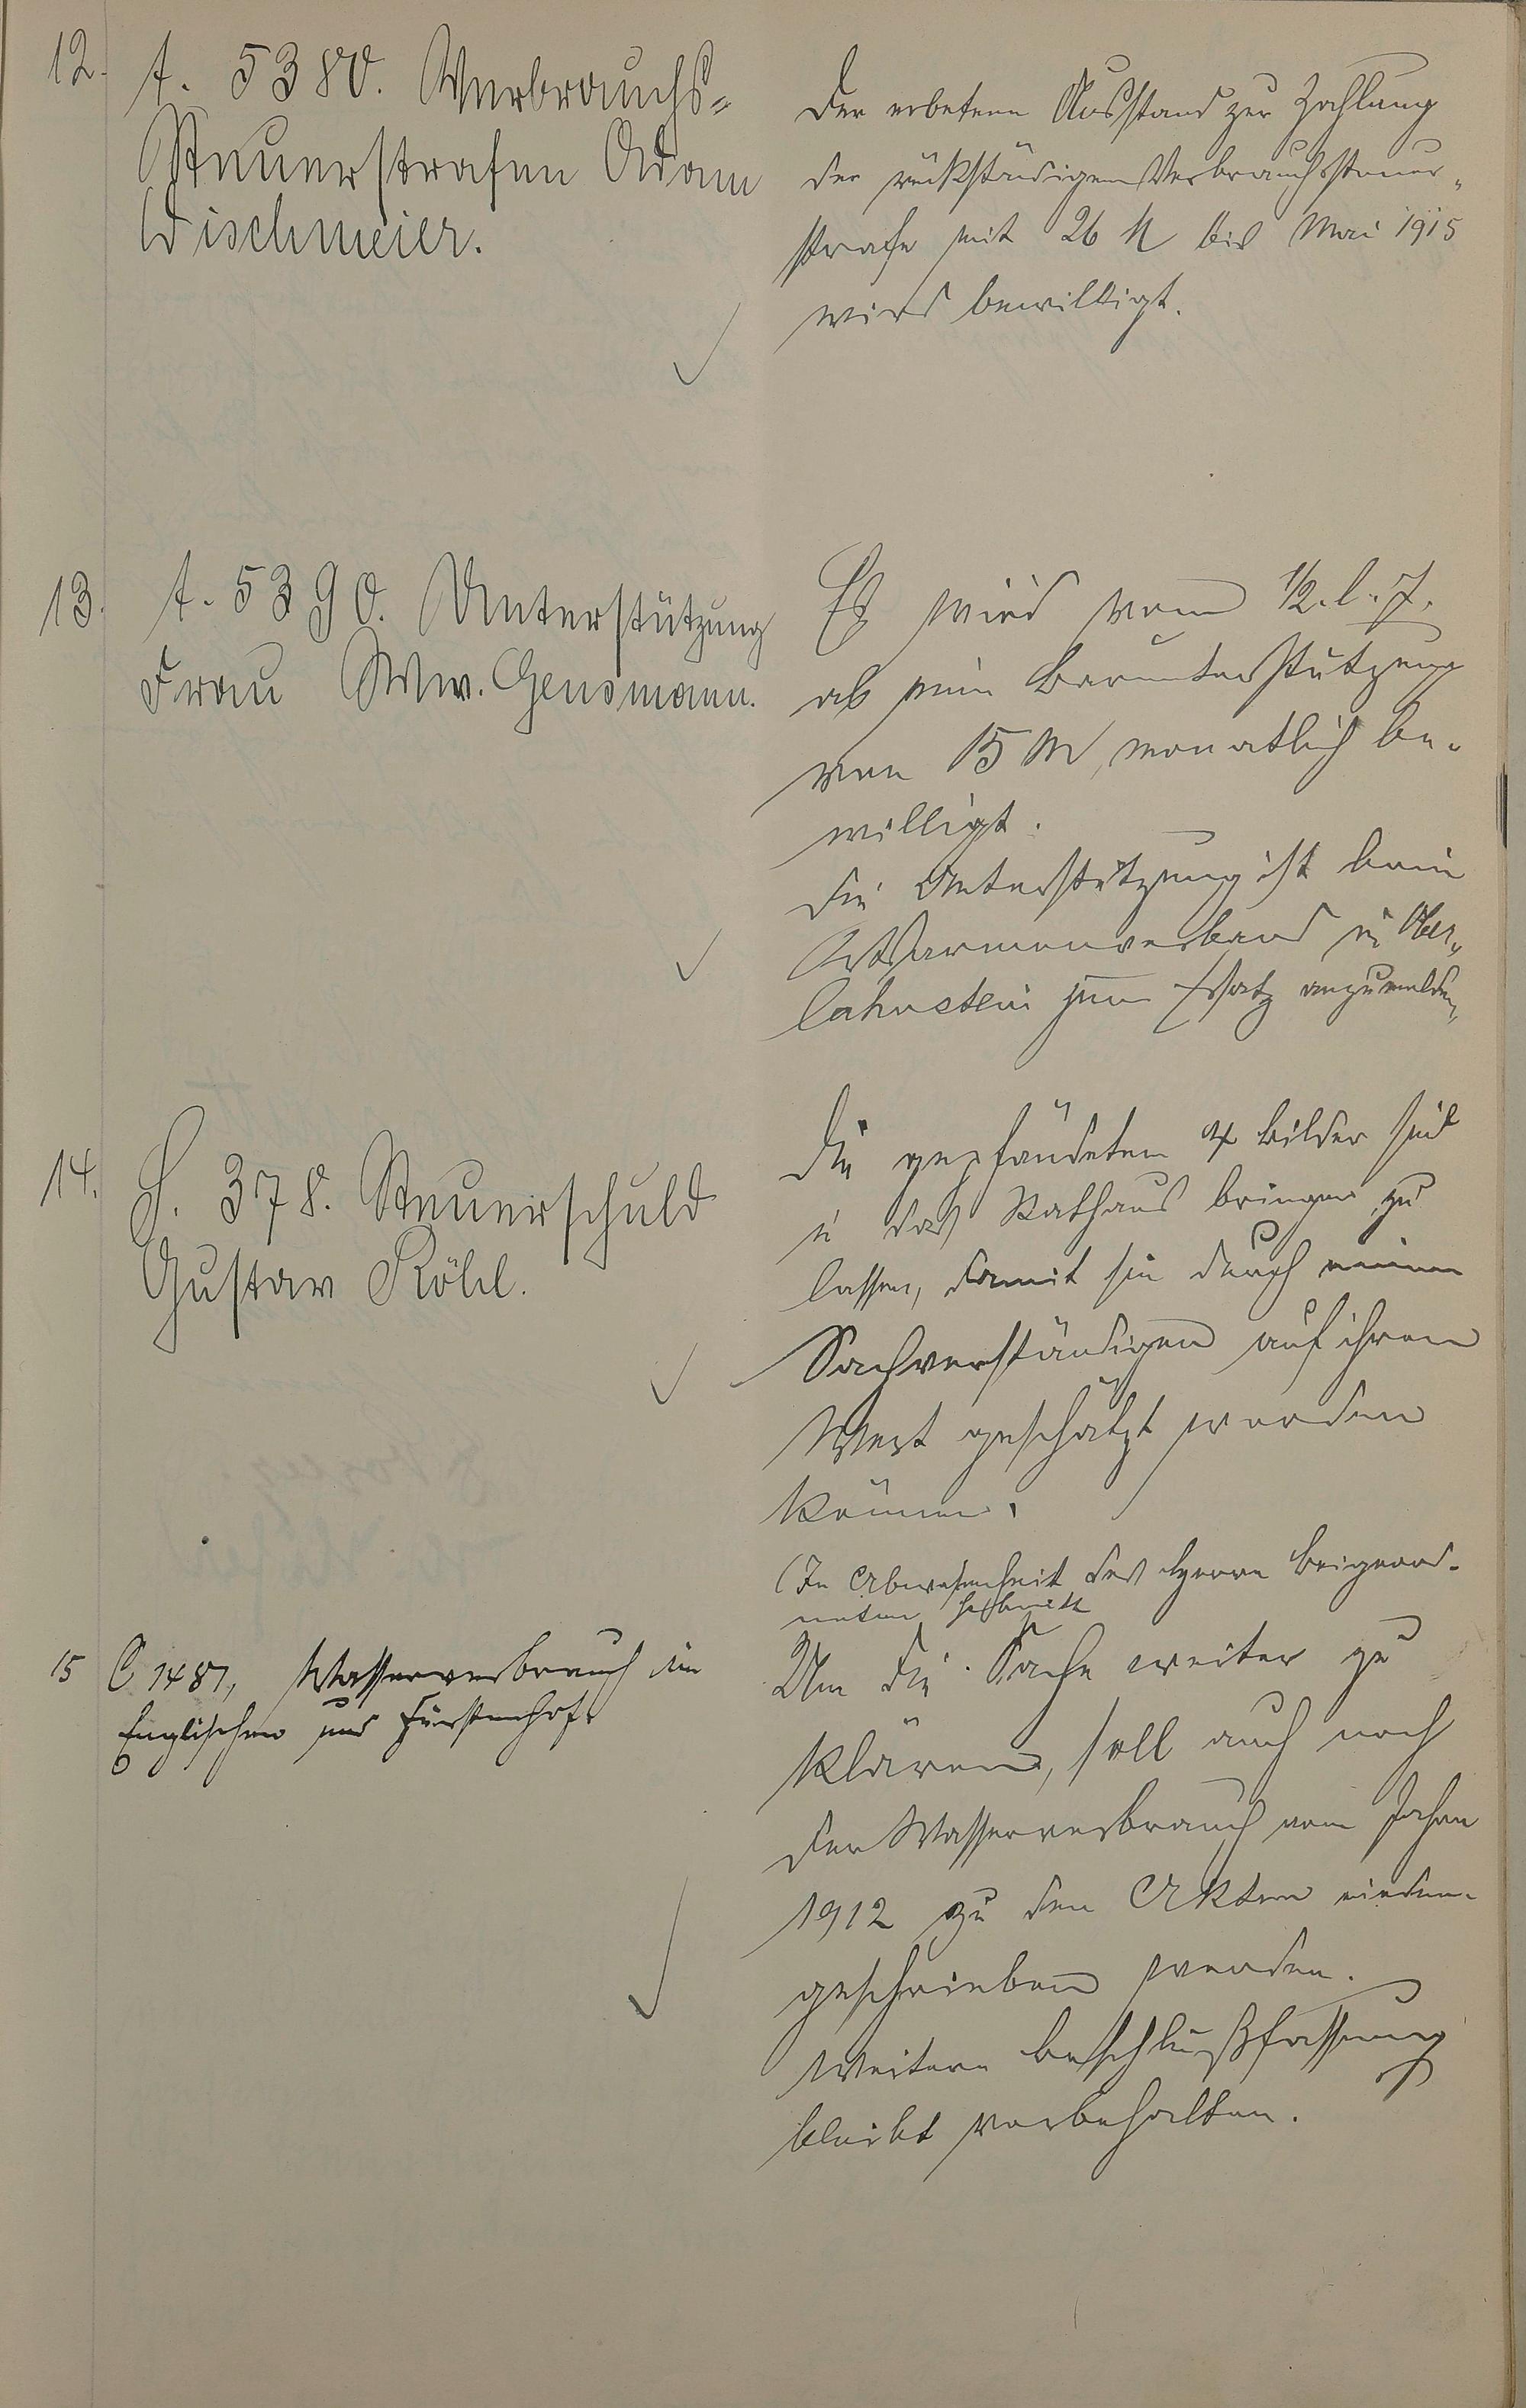 12. A. 5380. Verbrauchs-
Steuerstrafen Adam
Wischmeier.
Der erbetene Ausstand zur Zahlung
der rückständigen Verbrauchssteuer-
strafe mit 26 M bis Mai 1915
wird bewilligt.
13. A. 5390. Unterstützung
Frau Ww. Gensmann.
Es wird vom 1/2. l. J.
ab eine Barunterstützung
von 15 M, monatlich be-
willigt.
Die Unterstützung ist beim
Ortsarmenverband in Ober-
lahnstein zum Ersatz anzumelden,
14. S. 378. Steuerschuld
Gustav Röhl.
Die gepfändeten 4 Bilder sind
in das Rathaus bringen zu
lassen, damit sie durch einen
Sachverständigen auf ihren
Wert geschätzt werden
können.
(In Abwesenheit des Herrn Beigeord-
neten
15 C 1481, Wasserverbrauch im
Englischen und Fürstenhof.
Um die Sache weiter zu
klären, soll auch noch
der Wasserverbrauch vom Jahre
1912 zu den Akten nieder-
geschrieben werden.
Weitere Beschlußfassung
bleibt vorbehalten.